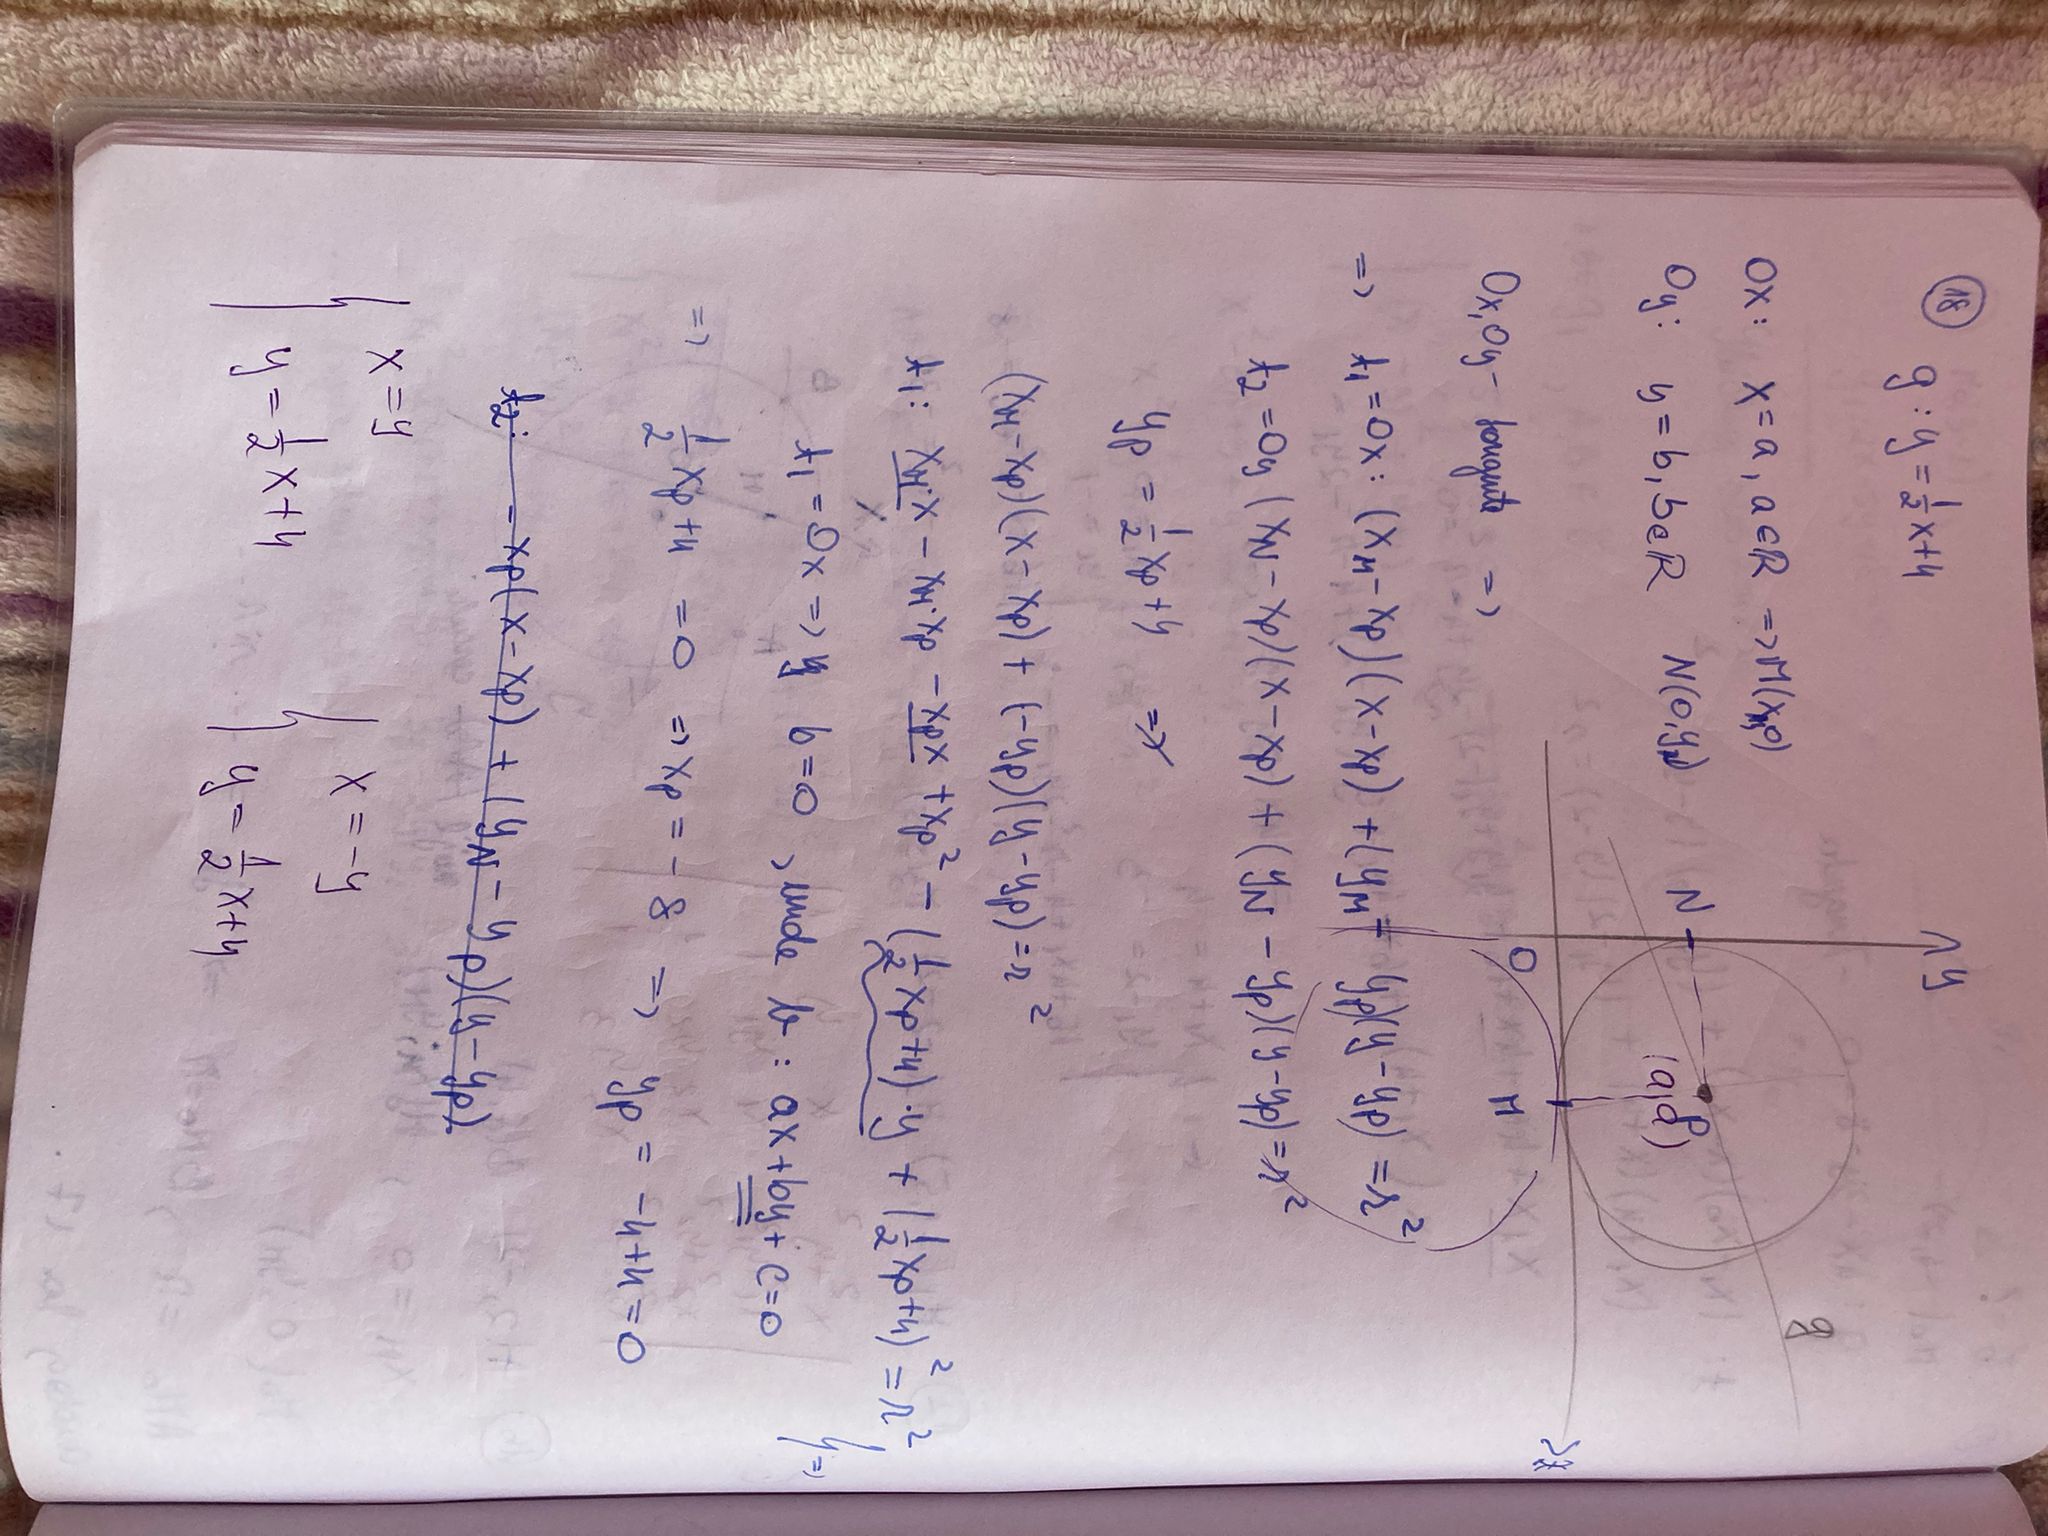 18
g : y = 1/2 x+4
y
g
Ox: x = a, a∈R => M(xM,0)
Oy: y = b, b∈R N(0,yN)
N
P
(a,a)
x
O
M
Ox, Oy - tangente =>
=> t1 = Ox: (xM - xP)(x - xP) + (yM - yP)(y - yP) = r²
t2 = Oy (xN - xP)(x - xP) + (yN - yP)(y - yP) = r²
yP = 1/2 xP + 4 =>
(xM - xP)(x - xP) + (-yP)(y - yP) = r²
t1: xM·x - xM·xP - xPx + xP² - (1/2 xP+4)·y + (1/2 xP+4)² = r²
t1 = Ox => b = 0, unde : ax + by + c = 0
} =>
=> 1/2 xP + 4 = 0 => xP = -8 => yP = -4+4 = 0
t2: -xP(x - xP) + (yN - yP)(y - yP)
x = y
y = 1/2 x + 4
x = -y
y = 1/2 x+4